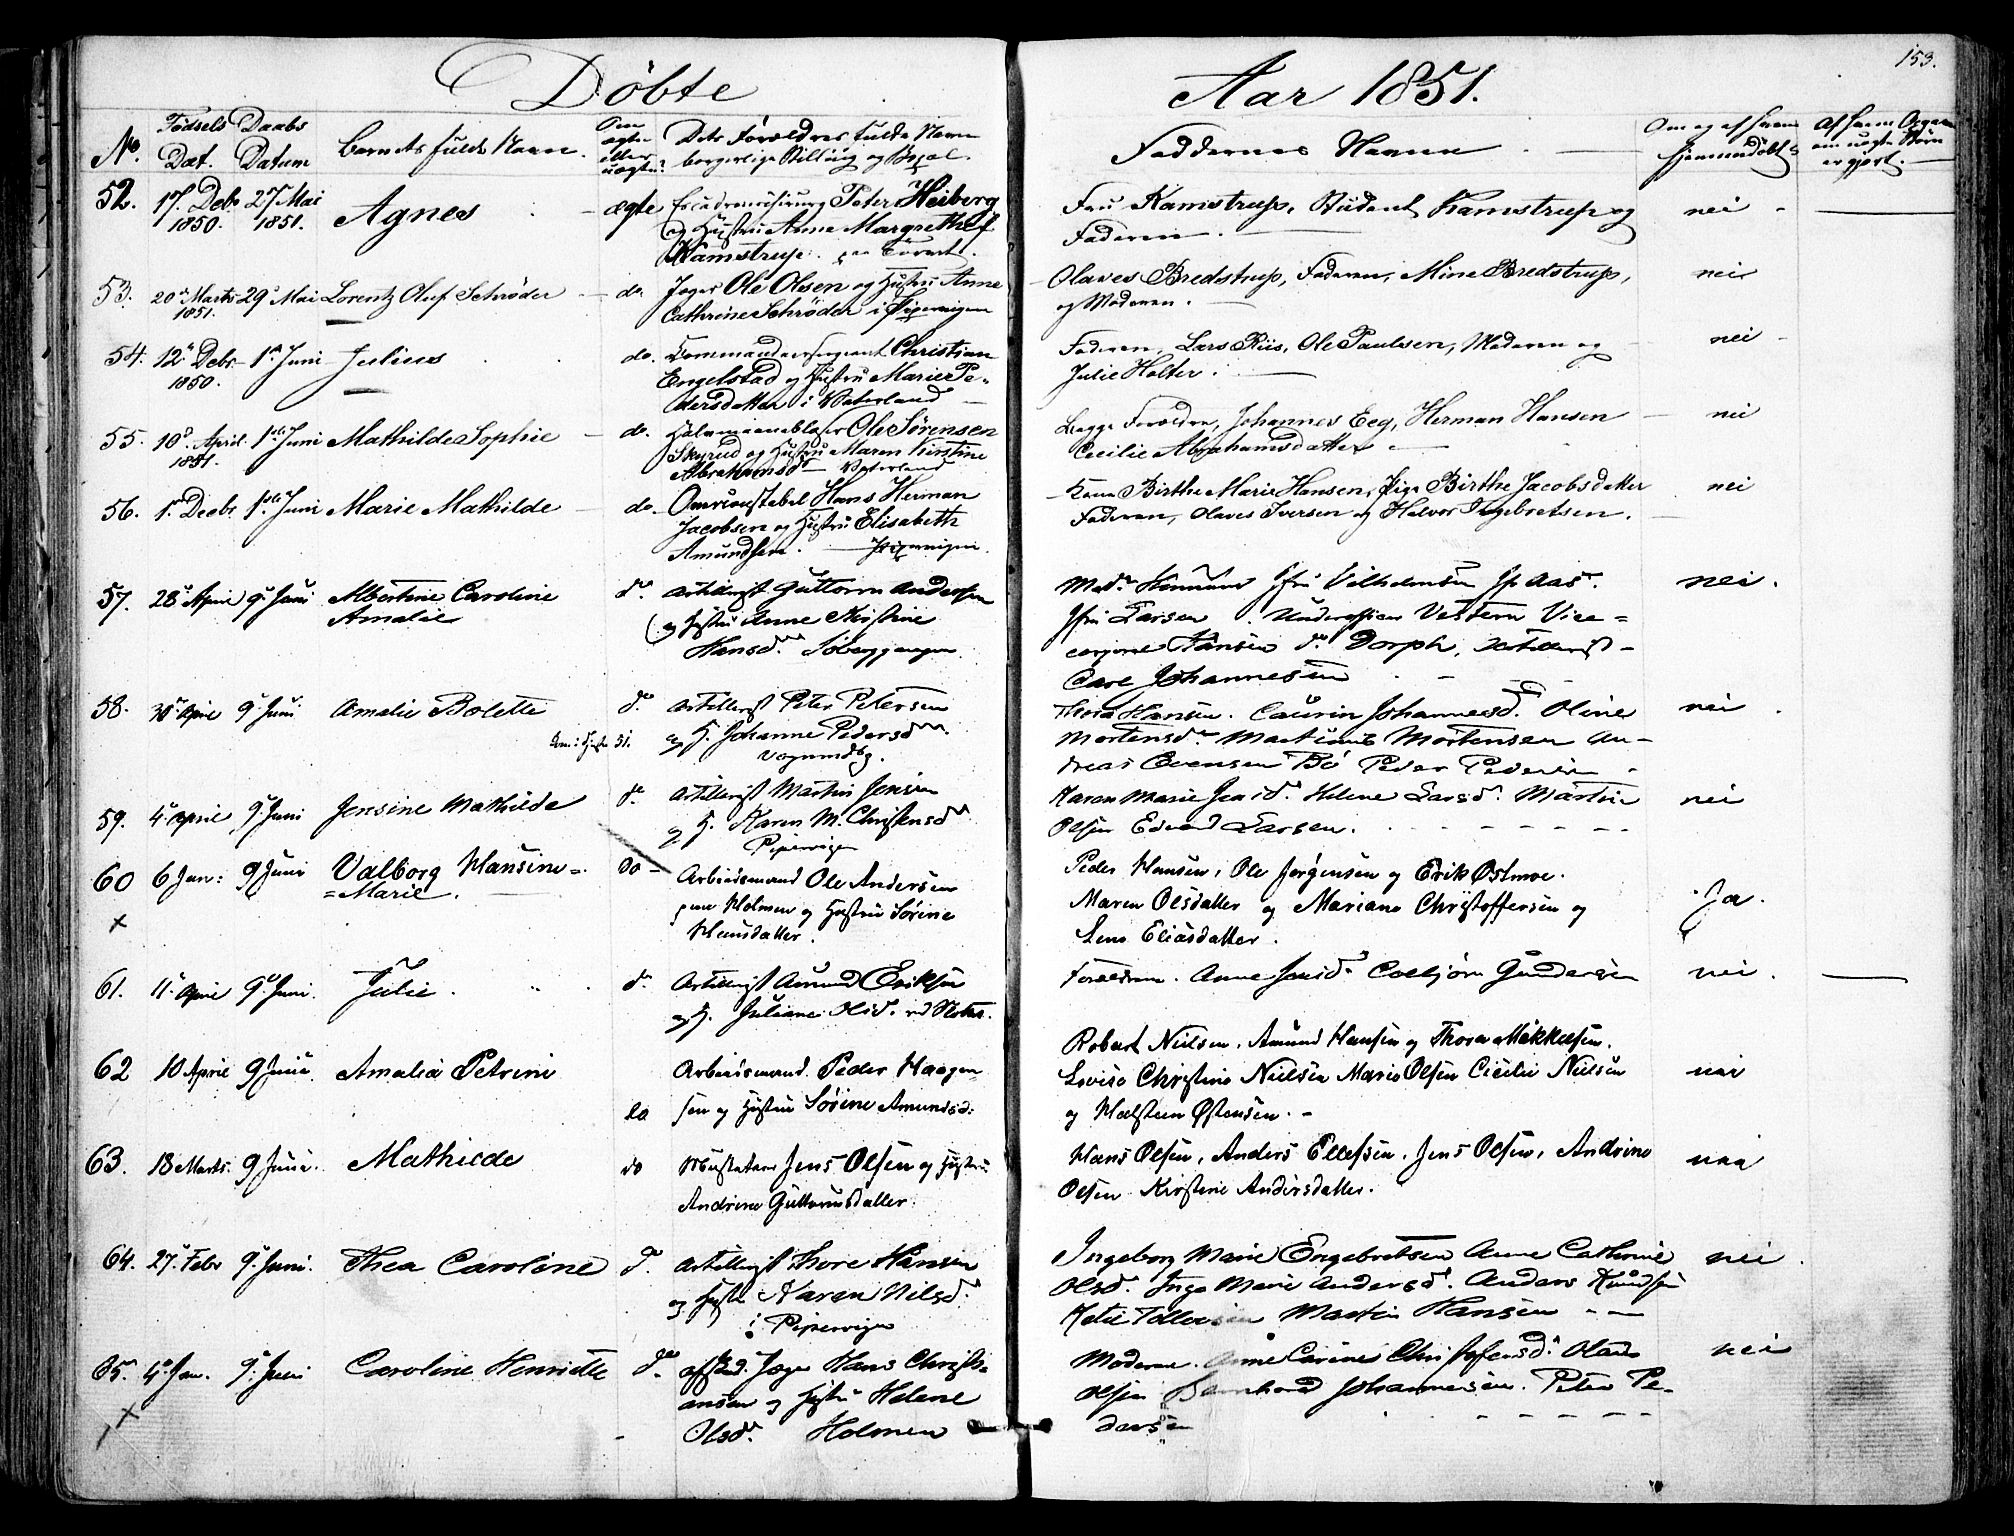 153.
Döbte
Aar 1851.
No. Fødsels Dat. Daabs Datum Barnets fulde Navn. Om ægte eller uægte? Dets Forældres fulde Navn borgerlige Stilling og Bopæl.
Faddernes Navne Om og af hvem hjemmedöbt?
52. 17. Debr 1850. 27 Mai 1851. Agnes ægte Peter Heiberg
og Hustru Anne Margrethe
Kamstrup.
Fru Kamstrup, Student Kamstrup og nei
Faderen.
53. 20 Marts 1851. 29 Mai Lorentz Oluf Schröder do. Jæger Ole Olsen og Hustru Anne
Cathrine Schröder i Pipervigen
Olaves Bredstrup, Faderen, Mine Bredstrup, nei
og Moderen.
54. 12 Debr. 1850. 1 Juni Julius do. Commandeersergeant Christian
Engelstad og Hustru Marie Pe-
dersdatter i Vaterland
Faderen, Lars Riis, Ole Paulsen, Moderen og nei
Julie Holter.
55. 10 April 1851. 1ste Juni Mathilde Sophie do. Ole Sørensen
Skyrud og Hustru Maren Kirstine
Abrahamsd Vaterland
Begge Forældre, Johannes Eeg, Herman Hansen nei
Cecilie Abrahamsdatter
56. 1 Decbr 1ste Juni Marie Mathilde do. Hans Herman
Jacobsen og Hustru Elisabeth
Amundsen. Pipervigen.
Kone Birthe Marie Hansen, Pige Birthe Jacobsdatter nei
Faderen, Olaves Iversen og Halvor Ingebretsen.
57. 28 April 9 Juni Albertine Caroline
Amalie do artillerist Guttorm Andersen
og Hustru Anne Kristine
Hansd.
Jfr Vilhelmsen Jfr Aas. nei.
Jfr Larsen. Underofficer Vestern Vice-
corporal Hansen do Dorph, Artillerist
Carl Johannesen
58. 30 April 9 Juni Amalie Bolette do artillerist Peter Petersen
og H. Johanne Pedersd
Thora Hansen. Laurin Johannesd. Oline nei
Mortensd. Martinus Mortensen An-
dreas Evensen Bö Peder Pedersen
59. 4 april 9 Juni Jensine Mathilde do artillerist Martin Jensen
og H. Karen M. Christensd
Pipervigen
Karen Marie Jensd. Helene Larsd. Martin nei
Olsen Edvard Larsen.
60 6 Jan: 9 Juni Valborg Hansine=
=Marie. do Arbeidsmand Ole Andersen
paa Holmen og Hustru Sørine
Hansdatter.
Peder Hansen, Ole Jørgensen og Erik Østmoe.
Maren Olsdatter og Mariane Christoffersen og Ja.
Lene Eliasdatter.
61. 11 April 9 Juni. Julie. do Artillerist Amund Eriksen
og H. Juliane Olsd.
Forældrene. Anne Jensd Colbjørn Gundersen nei.
62 10 April 9 Juni Amalia Petrine Arbeidsmand Peder Haagen-
do sen og Hustru Sørine Amundsd:
Robert Nielsen. Amund Hansen og Thorer Mikkelsen.
Lovise Christine Nielsen Marie Olsen Cicilie Nielsen nei
og Halsteen Østensen.
63. 18 Marts. 9 Juni. Mathilde do Jens Olsen og Hustru
Andrine Guttormsdatter.
Hans Olsen, Anders Ellefsen. Jens Olsen, Andrine nei
Olsen Kirstine Andersdatter.
64. 27 Febr 9 Juni. Thea Caroline do artillerist Thore Hansen
og Hustru Karen Nilsd.
i Pipervigen
Ingeborg Marie Engebretsen Anne Cathrine nei
Olsd. Inge Marie Andersd. Anders Knudsen
Martin Hansen
65. 4 Jan. 9 Juni Caroline Henriette do afsked. Jæger Hans Christi-
ansen og Hustru Helene
Olsd. Holmen
Moderen. Anne Carine Christofersd. Hans nei
Olsen Bernhard Johannesen. Peter Pe-
dersen